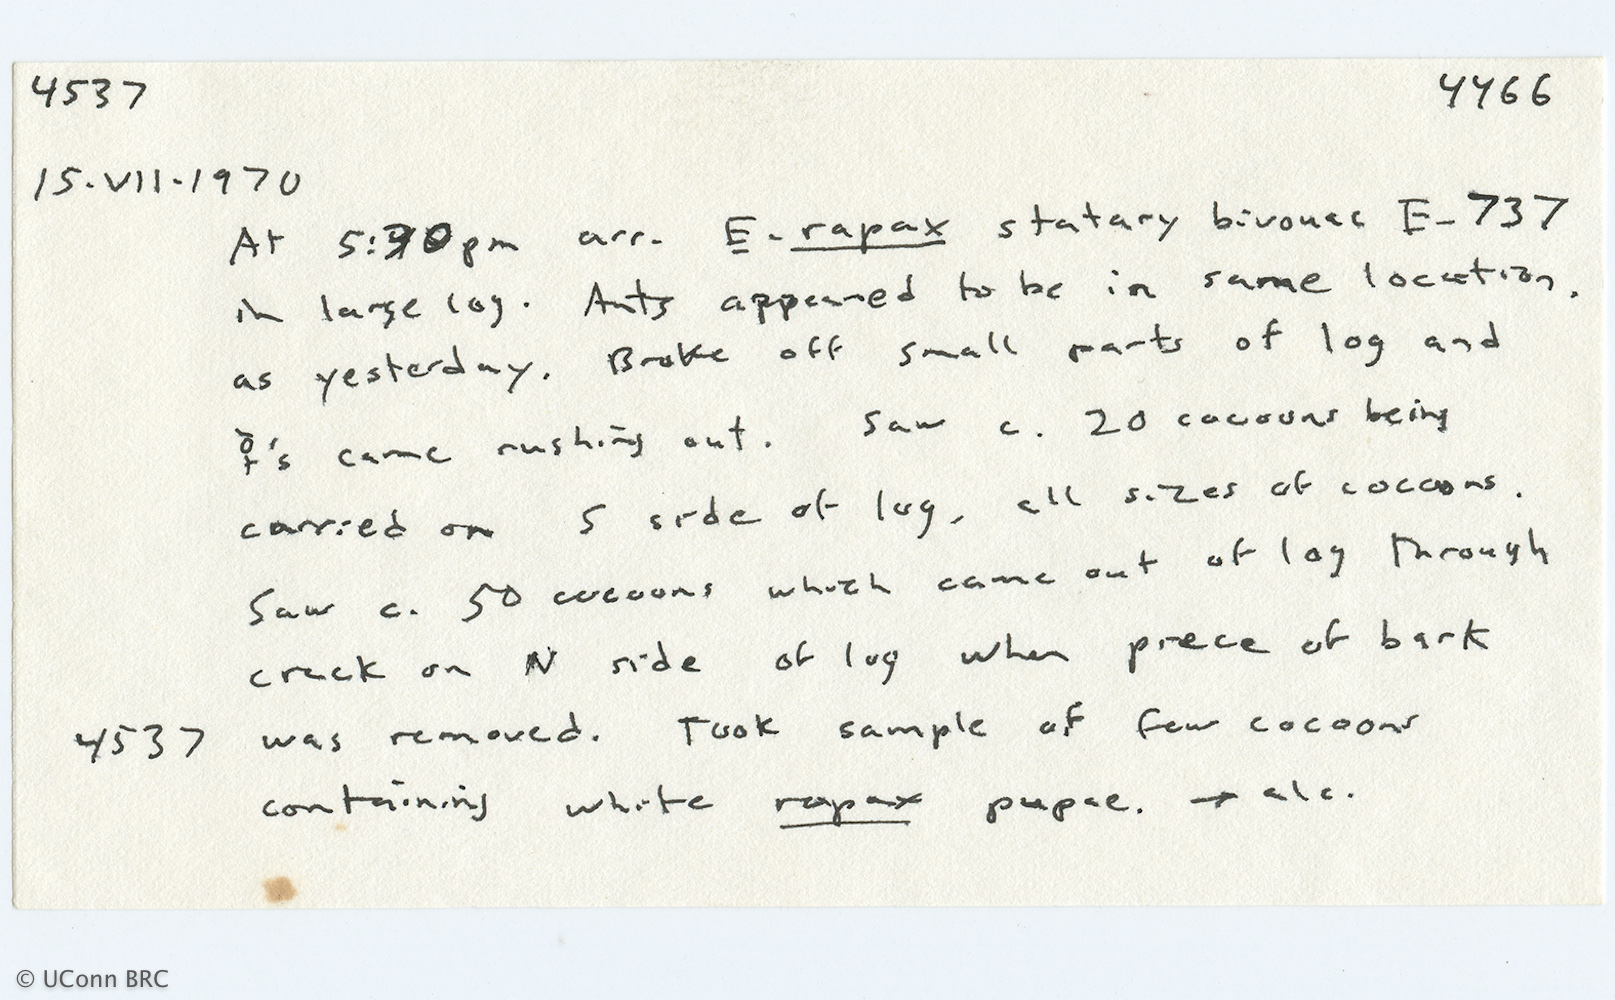 4537 4466
15.VII.1970
At 5:30pm arr. E. rapax statary bivouac E-737
in large log. Ants appeared to be in same location,
as yesterday. Broke off small parts of log and
☿'s came rushing out. Saw c. 20 cocoons being
carried on S side of log, all sizes of cocoons.
Saw c. 50 cocoons which came out of log through
crack on N side of log when piece of bark
4537 was removed. Took sample of few cocoons
containing white rapax pupae. → alc.
© UConn BRC